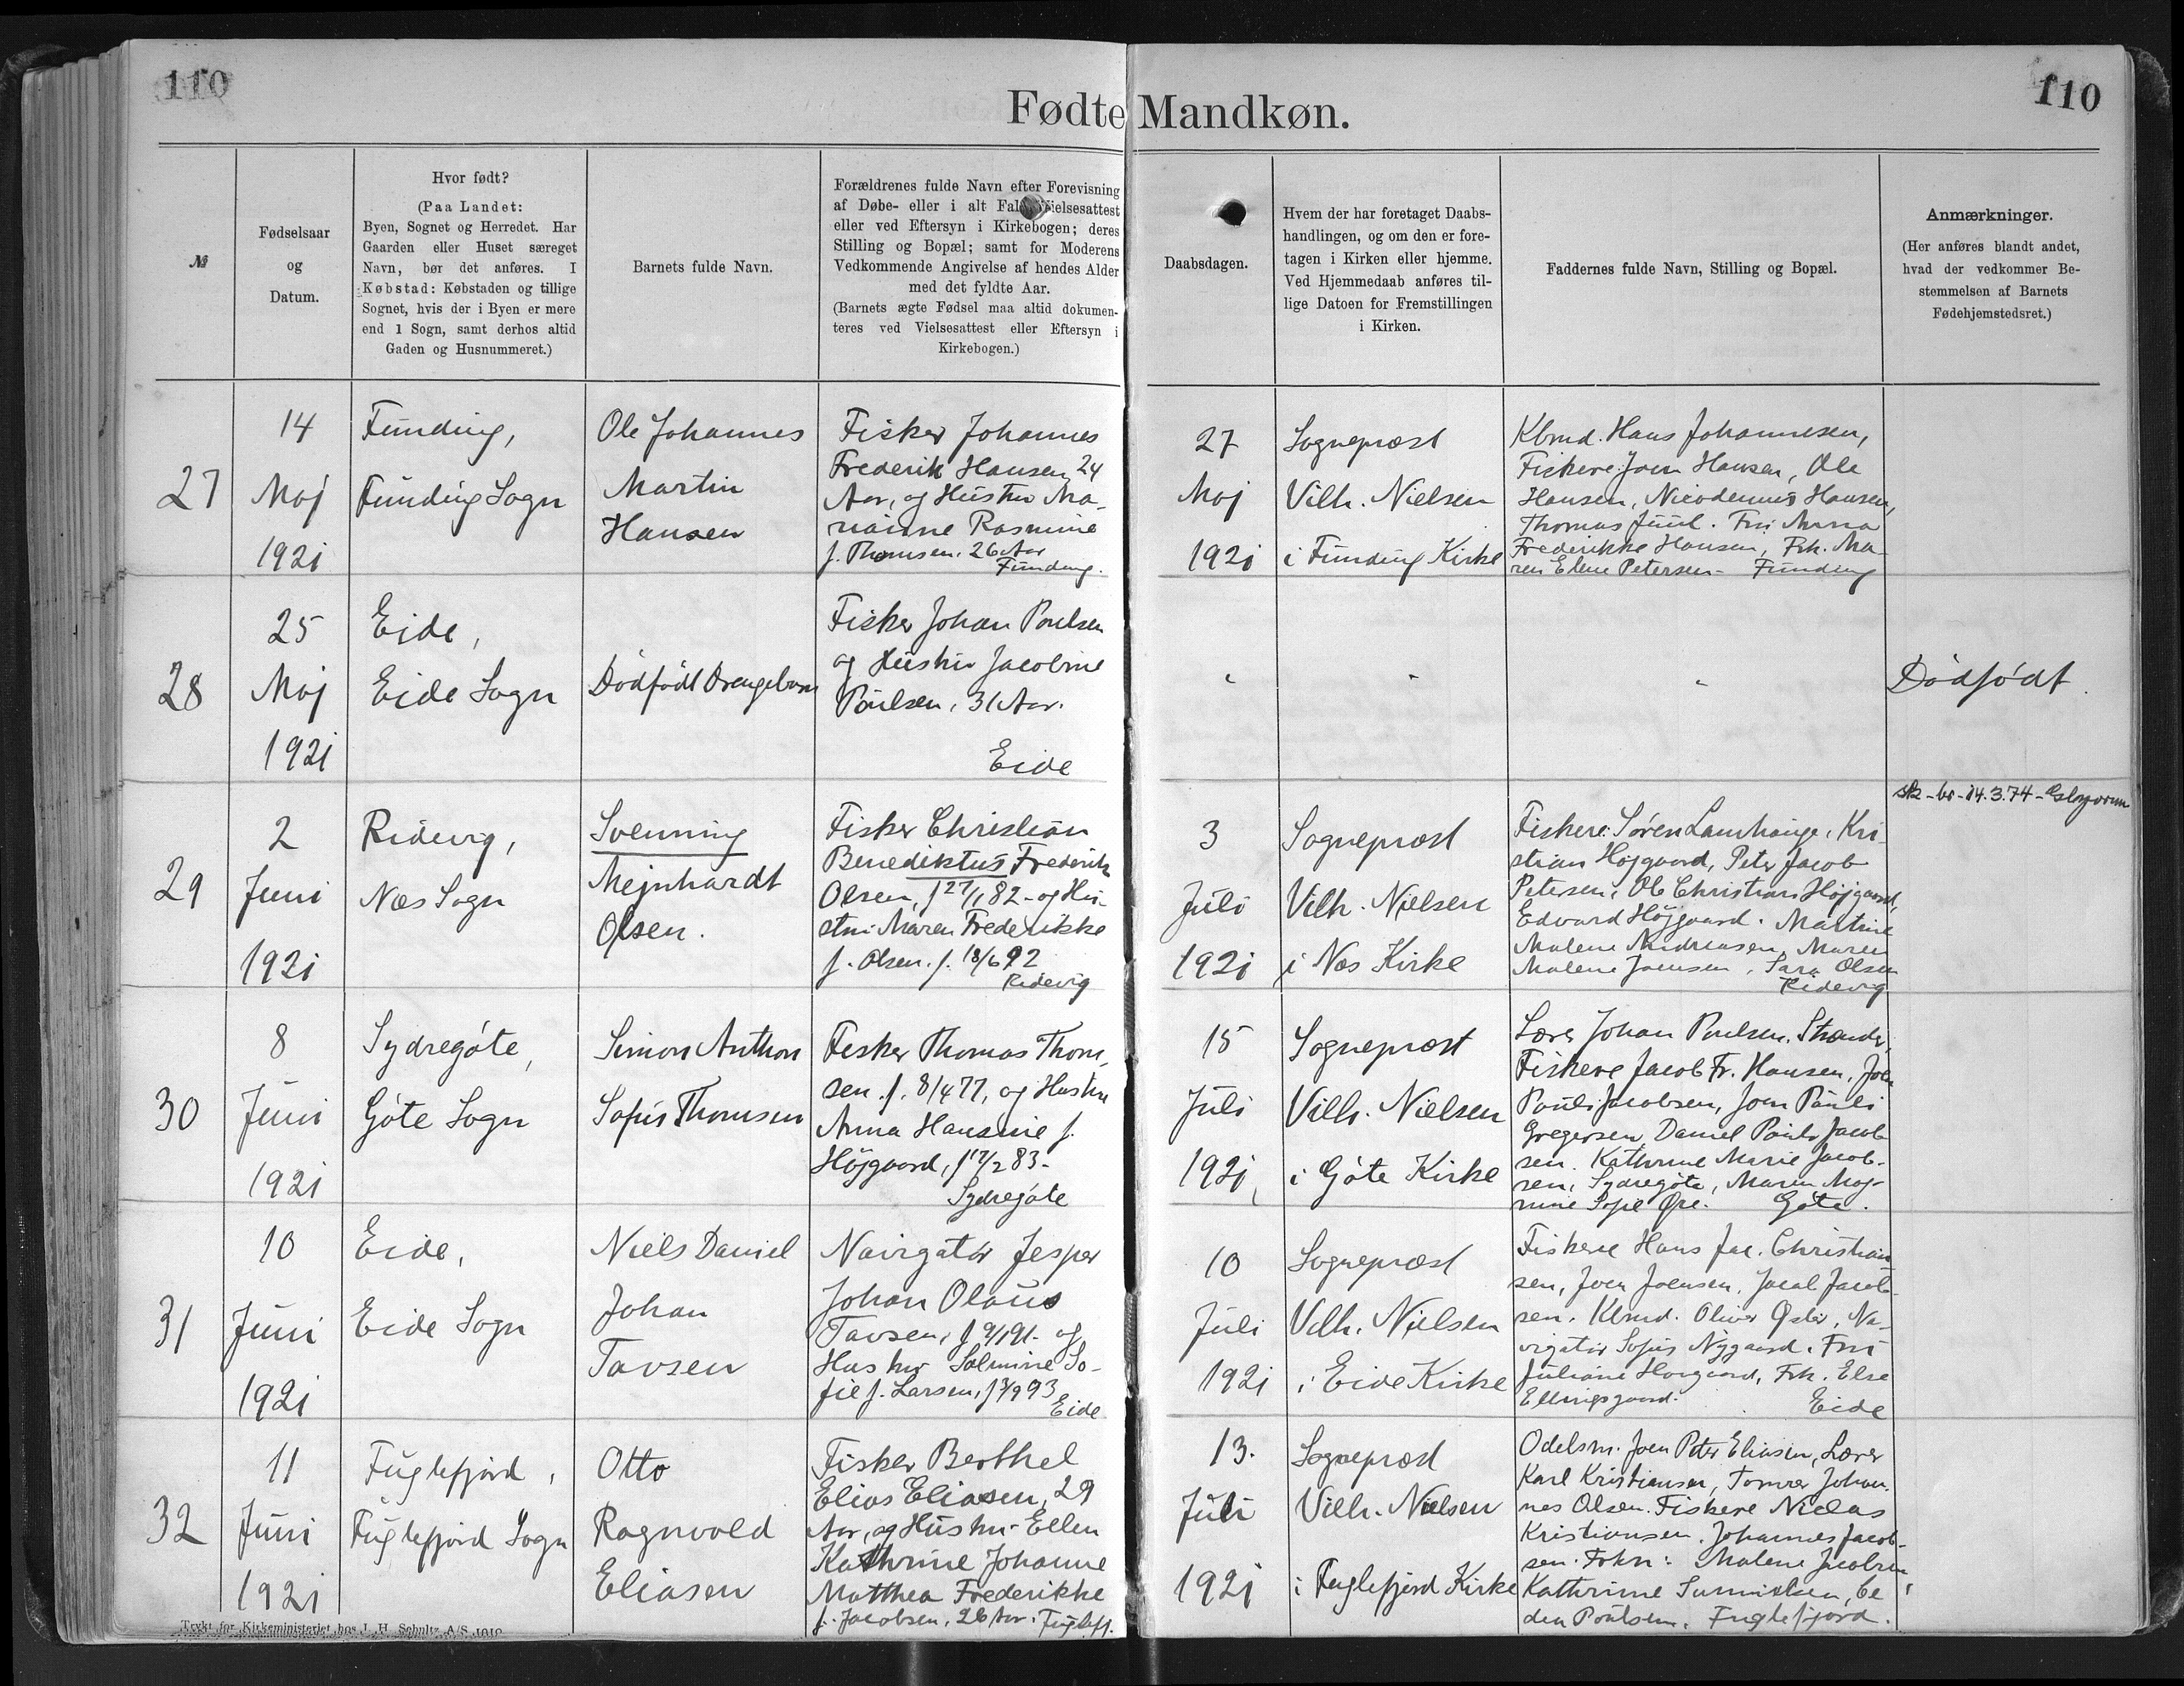 110
110
Fødte Mandkøn.
№
Fødselsaar
og
Datum.
Hvor født?
(Paa Landet:
Byen, Sognet og Herredet. Har
Gaarden eller Huset særeget
Navn, bør det anføres. I
Købstad: Købstaden og tillige
Sognet, hvis der i Byen er mere
end 1 Sogn, samt derhos altid
Gaden og Husnummeret.)
Barnets fulde Navn.
Forældrenes fulde Navn efter Forevisning
af Døbe- eller i alt Fald Vielsesattest
eller ved Eftersyn i Kirkebogen; deres
Stilling og Bopæl; samt for Moderens
Vedkommende Angivelse af hendes Alder
med det fyldte Aar.
(Barnets ægte Fødsel maa altid dokumen-
teres ved Vielsesattest eller Eftersyn i
Kirkebogen.)
Daabsdagen.
Hvem der har foretaget Daabs-
handlingen, og om den er fore-
tagen i Kirken eller hjemme.
Ved Hjemmedaab anføres til-
lige Datoen for Fremstillingen
i Kirken.
Faddernes fulde Navn, Stilling og Bopæl.
Anmærkninger.
(Her anføres blandt andet,
hvad der vedkommer Be-
stemmelsen af Barnets
Fødehjemstedsret.)
27
14
Maj
1921
Funding,
Funding Sogn
Ole Johannes
Martin
Hansen
Fisker Johannes
Frederik Hansen 24
Aar, og Hustru Ma-
rianne Rasmine
f. Thomsen. 26 Aar
Funding.
27
Maj
1921
Sognepræst
Vilh. Nielsen
i Funding Kirke
Kbmd. Hans Johannesen,
Fiskere: Joen Hansen, Ole
Hansen, Nicodemus Hansen,
Thomas Juul. Fru Anna
Frederikke Hansen, Frk. Ma-
ren Elene Petersen - Funding
28
25
Maj
1921
Eide,
Eide Sogn
Dödfödt Drengebarn
Fisker Johan Poulsen
og Hustru Jacobine
Poulsen, 31 Aar.
Eide
Dödfödt.
29
2
Juni
1921
Ridevig,
Næs Sogn
Svenning
Mejnhardt
Olsen.
Fisker Christian
Benediktus Frederik
Olsen, f 27/1 82 - og Hu-
stru Maren Frederikke
f. Olsen. f. 18/6 92
Ridevig
3
Juli
1921
Sognepræst
Vilh. Nielsen
i Næs Kirke
Fiskere: Søren Lamhauge, Kri-
stian Højgaard, Peter Jacob
Petersen, Ole Christian Höjgaard,
Edvard Höjgaard. Martine
Malene Andreasen, Maren
Malene Joensen, Sara Olsen
Ridevig
14.3.74
30
8
Juni
1921
Sydregöte,
Göte Sogn
Simon Anthon
Sofus Thomsen
Fisker Thomas Thom-
sen f. 8/4 77, og Hustru
Anna Hansine f.
Höjgaard, f 17/2 83 -
Sydregöte
15
Juli
1921
Sognepræst
Vilh. Nielsen
i Göte Kirke
Lærer Johan Poulsen, Strænder,
Fiskere Jacob Fr. Hansen, Joen
Pouli Jacobsen, Joen Pauli
Gregersen, Daniel Pouli Jacob-
sen. Kathrine Marie Jacob-
sen, Sydregöte, Maren
Göte.
31
10
Juni
1921
Eide,
Eide Sogn
Niels Daniel
Johan
Tavsen
Navigatör Jesper
Johan Olaus
Tavsen, f 9/1 91 - og
Hustru Salmine So-
fie f. Larsen, f 3/9 93
Eide
10
Juli
1921
Sognepræst
Vilh. Nielsen
i Eide Kirke
Fiskere Hans Jac. Christian-
sen, Joen Joensen, Jacob Jacob-
sen, Kbmd. Oliver Øster, Na-
vigatör Sofus Nygaard. Fru
Juliane Horgaard, Frk. Else
Ellingsgaard.
Eide
32
11
Juni
1921
Fuglefjord,
Fuglefjord Sogn
Otto
Ragnvald
Eliasen
Fisker Berthel
Elias Eliasen, 29
Aar, og Hustru Ellen
Kathrine Johanne
Matthea Frederikke
f. Jacobsen, 26 Aar. Fuglefj.
13.
Juli
1921
Sognepræst
Vilh. Nielsen
i Fuglefjord Kirke
Odelsm. Joen Peter Eliasen, Lærer
Karl Kristiansen, Tømrer Johan-
nes Olsen. Fiskere Niclas
Kristiansen, Johannes Jacob-
sen. Frkn: Malene Jacobsen,
Kathrine
Poulsen. Fuglefjord.
Trykt for Kirkeministeriet hos J. H. Schultz A/S 1919